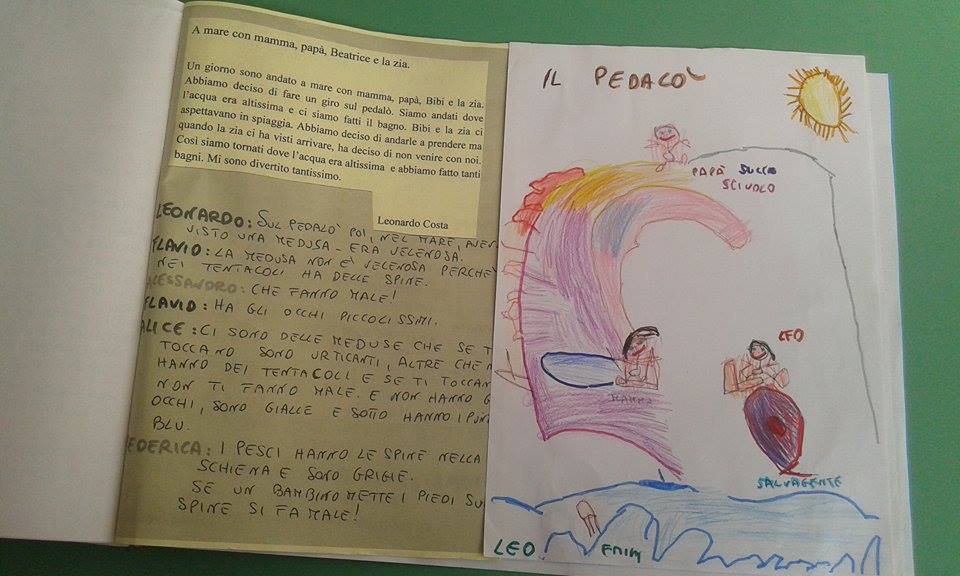 A mare con mamma, papà, Beatrice e la zia.
Un giorno sono andato a mare con mamma, papà, Bibi e la zia.
Abbiamo deciso di fare un giro sul pedalò. Siamo andati dove
l'acqua era altissima e ci siamo fatti il bagno. Bibi e la zia ci
aspettavano in spiaggia. Abbiamo deciso di andarle a prendere ma
quando la zia ci ha visti arrivare, ha deciso di non venire con noi.
Così siamo tornati dove l'acqua era altissima e abbiamo fatto tanti
bagni. Mi sono divertito tantissimo.
Leonardo Costa
LEONARDO: SUL PEDALO' POI, NEL MARE,
VISTO UNA MEDUSA - ERA VELENOSA.
FLAVIO: LA MEDUSA NON E' VELENOSA PERCHE'
NEI TENTACOLI HA DELLE SPINE.
ALESSANDRO: CHE FANNO MALE!
FLAVIO: HA GLI OCCHI PICCOLISSIMI.
ALICE: CI SONO DELLE MEDUSE CHE SE T
TOCCANO SONO URTICANTI, ALTRE CHE
HANNO DEI TENTACOLI E SE TI TOCCAN
NON TI FANNO MALE. E NON HANNO G
OCCHI, SONO GIALLE E SOTTO HANNO I PUN
BLU.
EDERICA: I PESCI HANNO LE SPINE NELLA
SCHIENA E SONO GRIGIE.
SE UN BAMBINO METTE I PIEDI SU
SPINE SI FA MALE!
IL PEDALO'
PAPÀ SULLO
SCIVOLO
LEO
MAMMA
SALVAGENTE
LEO